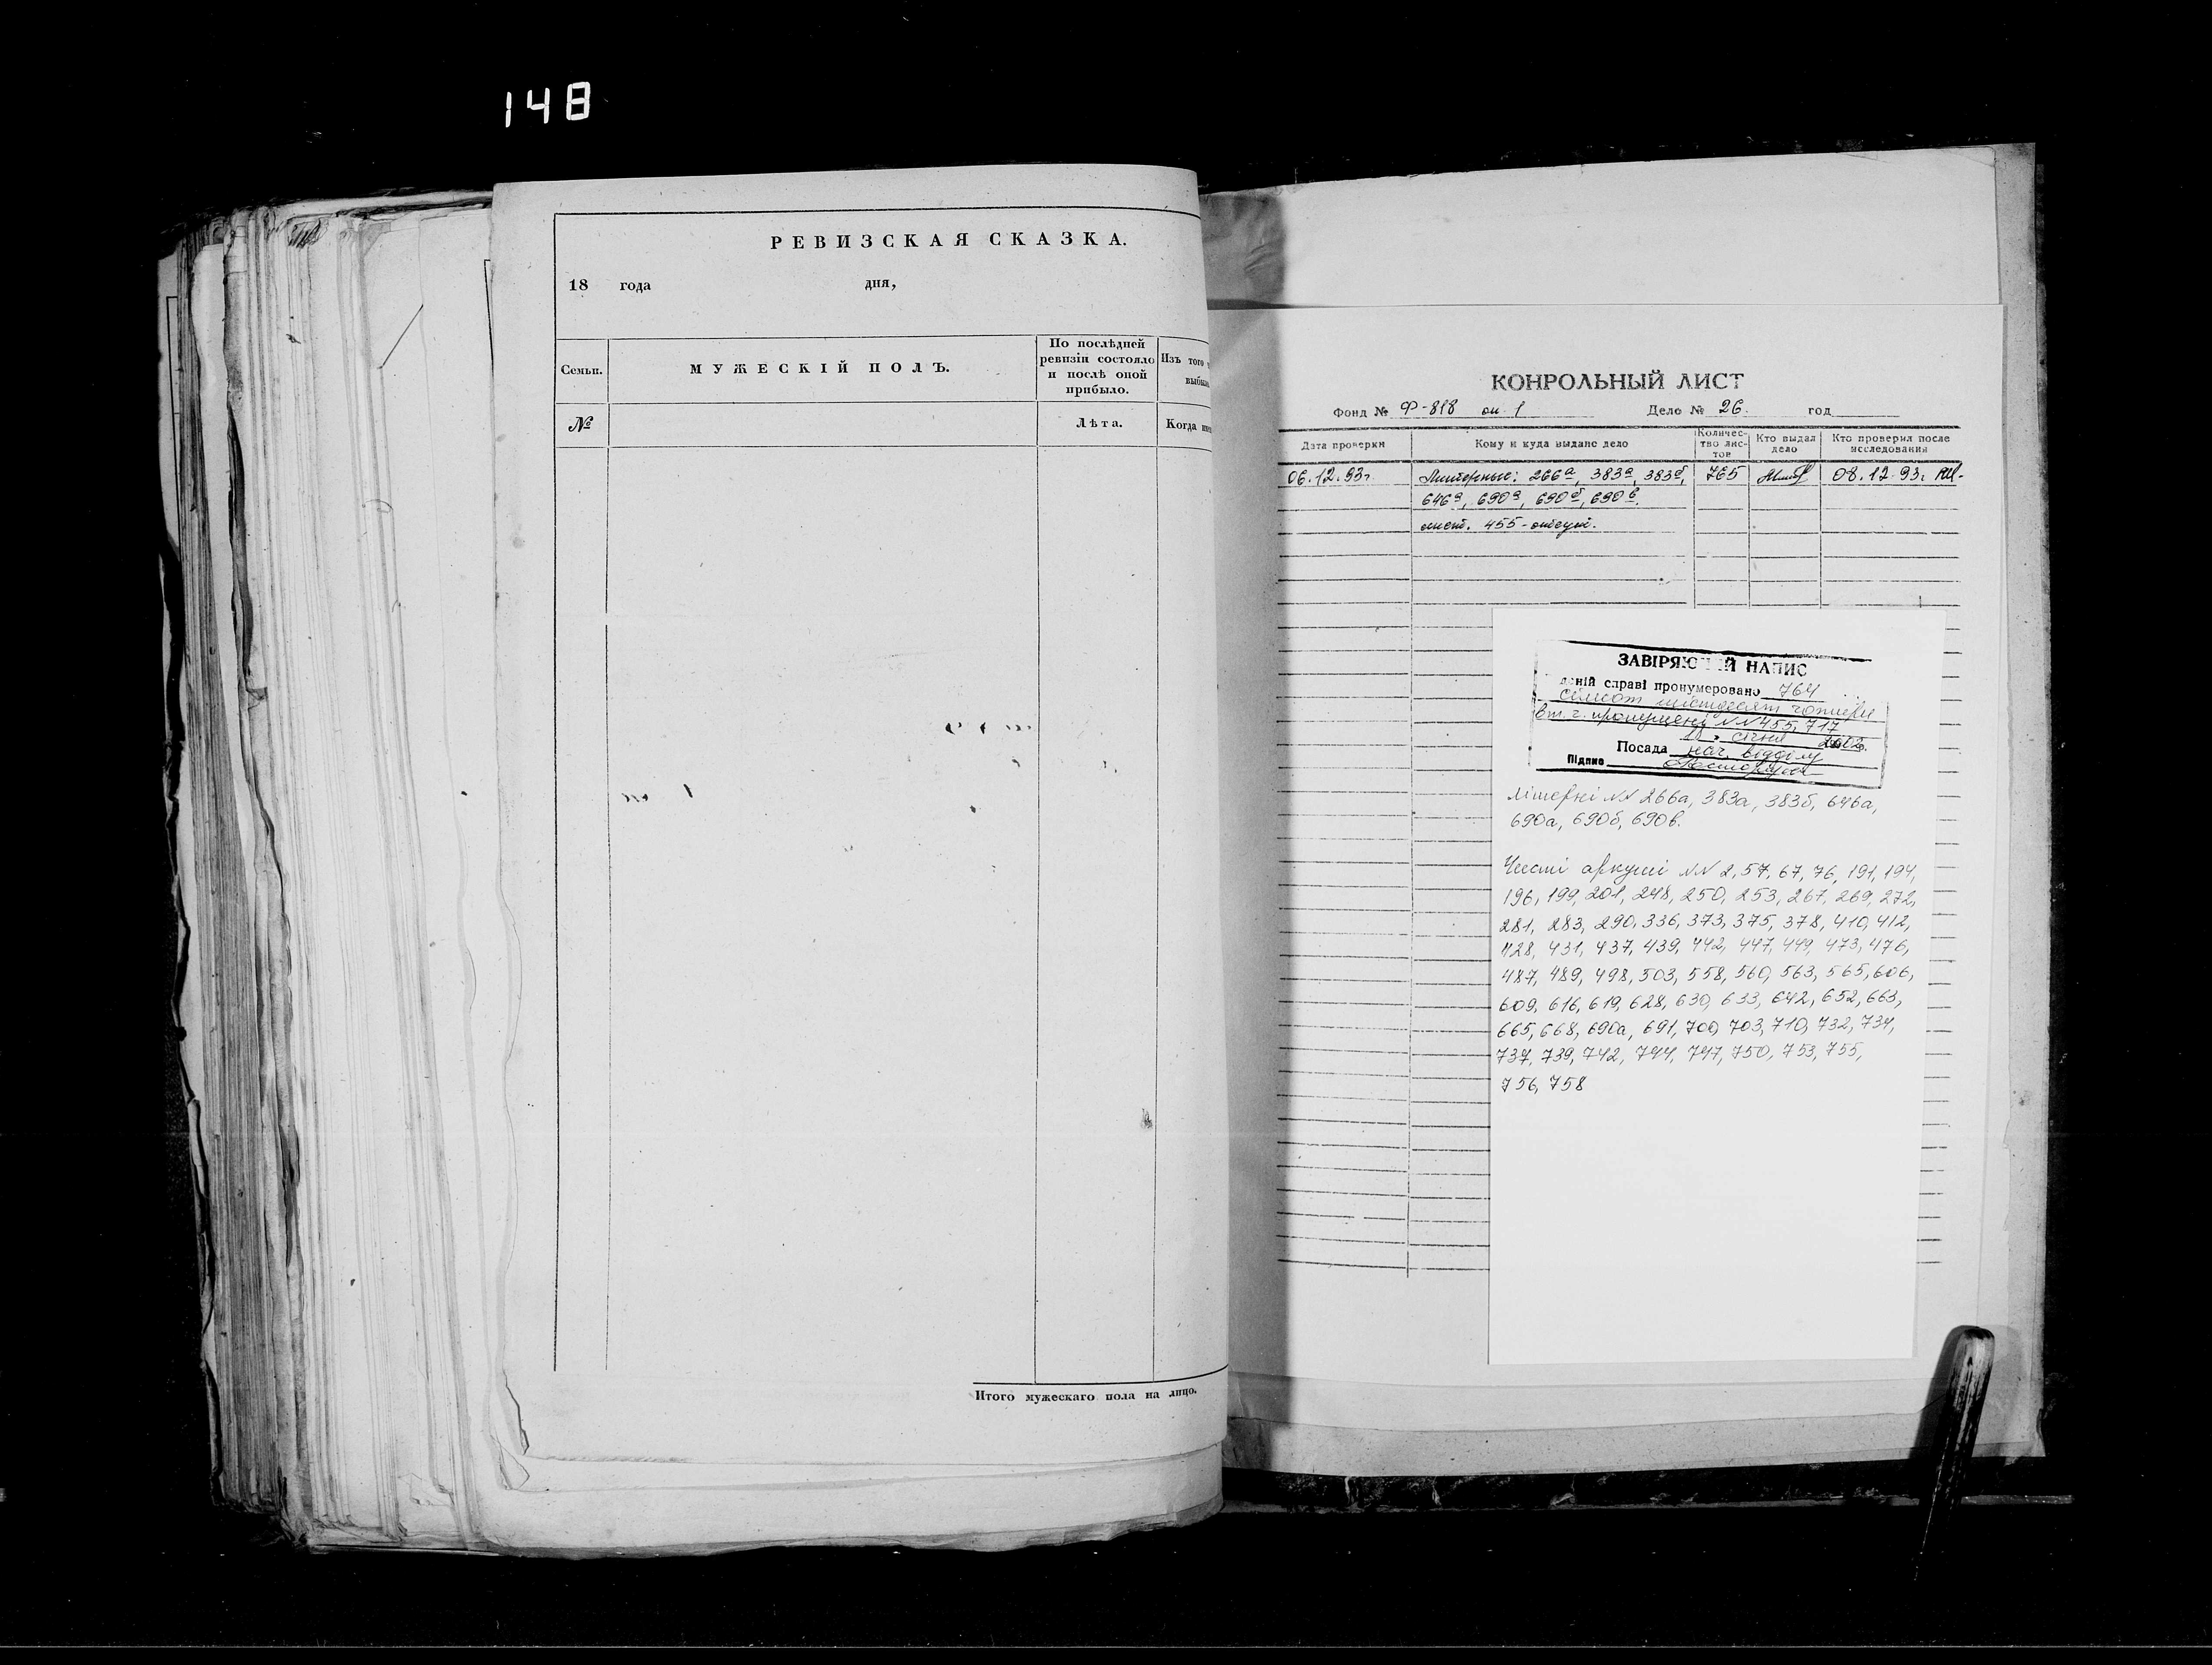 148
РЕВИЗСКАЯ СКАЗКА.
18 года дня,
Семьи.
МУЖЕСКІЙ ПОЛЪ.
По послѣдней
ревизіи состояло
и послѣ оной
прибыло.
Изъ того
выбыло
№
Лѣта.
Когда
Итого мужескаго пола на лицо.
КОНРОЛЬНЫЙ ЛИСТ
Фонд № Ф-818 оп. 1 Дело № 26. год
Дата проверки
Кому и куда выдано дело
Количес-
тво лис-
тов
Кто выдал
дело
Кто проверил после
исследования
06.12.93г. Литерные: 266а, 383а, 383б, 765 08.12.93г.
646а, 690а, 690б, 690в.
лист. 455-отсут.
ЗАВІРЯЮЧИЙ НАПИС
даній справі пронумеровано 764
сімсот шістдесят чотири
в т.ч. пропущені NN 455, 717
18 " січня 2002р.
Посада нач. відділу
Підпис
літерні NN 266а, 383а, 383б, 646а,
690а, 690б, 690в.
Чисті аркуші NN 2, 57, 67, 76, 191, 194,
196, 199, 201, 248, 250, 253, 267, 269, 272,
281, 283, 290, 336, 373, 375, 378, 410, 412,
428, 431, 437, 439, 442, 447, 449, 473, 476,
487, 489, 498, 503, 558, 560, 563, 565, 606,
609, 616, 619, 628, 630, 633, 642, 652, 663,
665, 668, 690а, 691, 700, 703, 710, 732, 734,
737, 739, 742, 744, 747, 750, 753, 755,
756, 758